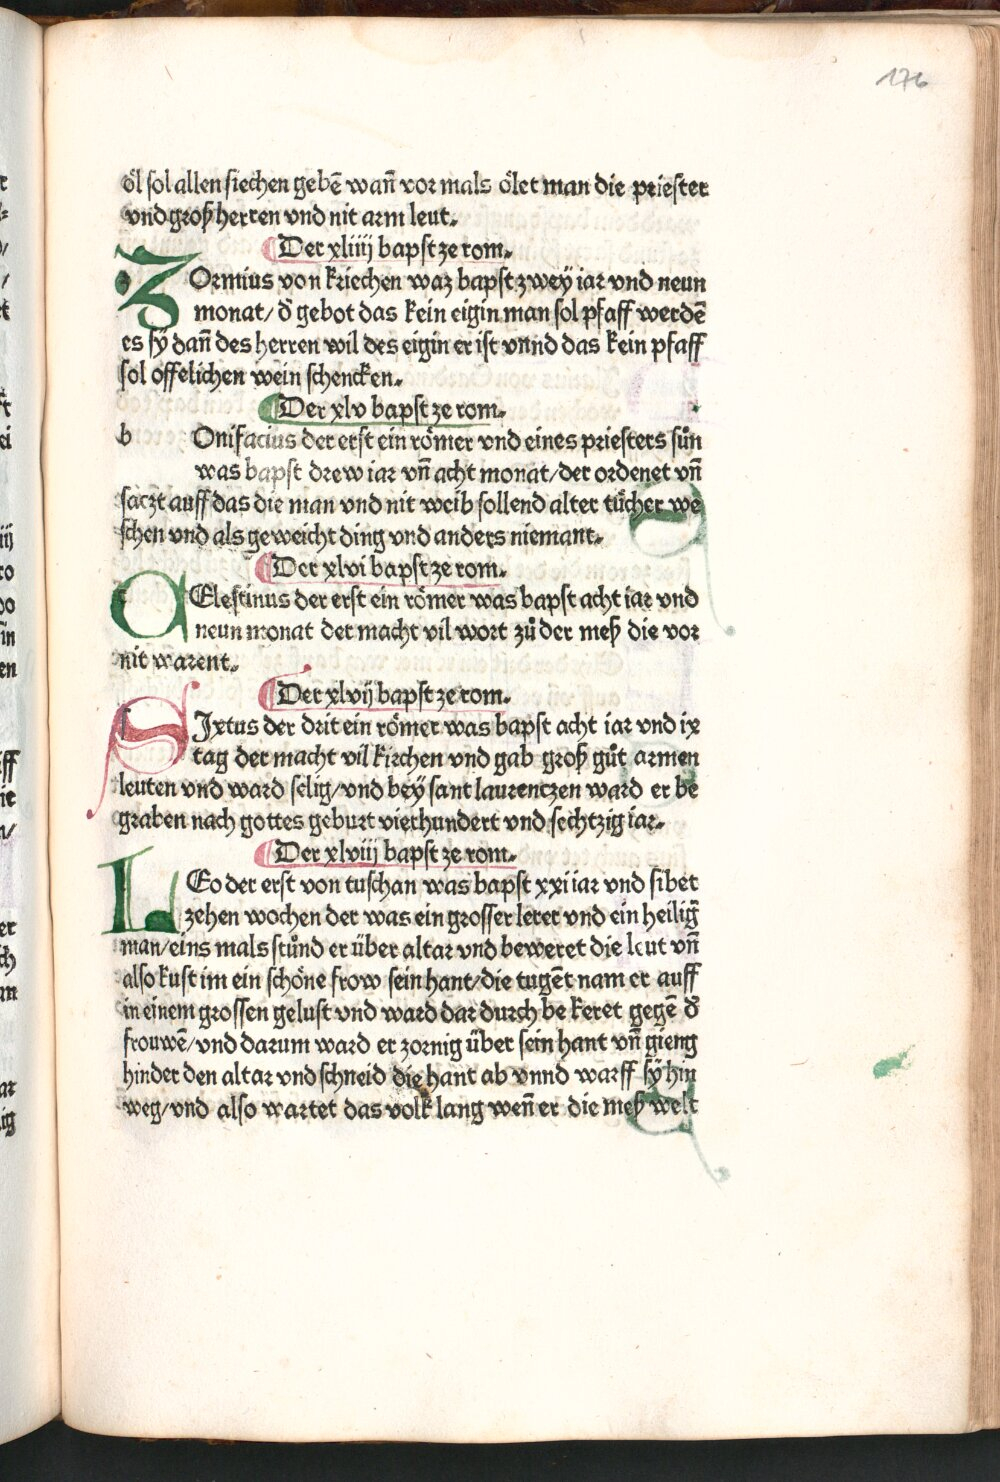 176
öl sol allen siechen gebē wañ vor mals ölet man die priester
vnd groß herren vnd nit arm leut.
Der xliiij bapst ze rom.
ZOrmius von kriechen waz bapst zweÿ iar vnd neun
monat/ đ gebot das kein eigin man sol pfaff werdē
es sÿ dañ des herren wil des eigin er ist vnnd das kein pfaff
sol offelichen wein schencken.
Der xlv bapst ze rom.
bOnifacius der erst ein römer vnd eines priesters sůn
was bapst drew iar vñ acht monat/der ordenet vñ
saczt auff das die man vnd nit weib sollend alter tücher we
schen vnd als geweicht ding vnd anders niemant.
Der xlvi bapst ze rom.
CElestinus der erst ein römer was bapst acht iar vnd
neun monat der macht vil wort zů der meß die vor
nit warent.
Der xlvij bapst ze rom.
SIxtus der drit ein römer was bapst acht iar vnd ix
tag der macht vil kirchen vnd gab groß gůt armen
leuten vnd ward selig/vnd beÿ sant laurentzen ward er be
graben nach gottes geburt vierhundert vnd sechtzig iar.
Der xlviij bapst ze rom.
LEo der erst von tuschan was bapst xxi iar vnd siben
zehen wochen der was ein grosser lerer vnd ein heilig
man/eins mals stůnd er über altar vnd beweret die leut vñ
also kust im ein schöne frow sein hant/die tugēt nam er auff
in einem grossen gelust vnd ward dar durch be keret gegē đ
frouwē/vnd darum ward er zornig über sein hant vñ gieng
hinder den altar vnd schneid die hant ab vnnd warff sÿ hin
weg/vnd also wartet das volk lang weñ er die meß welt